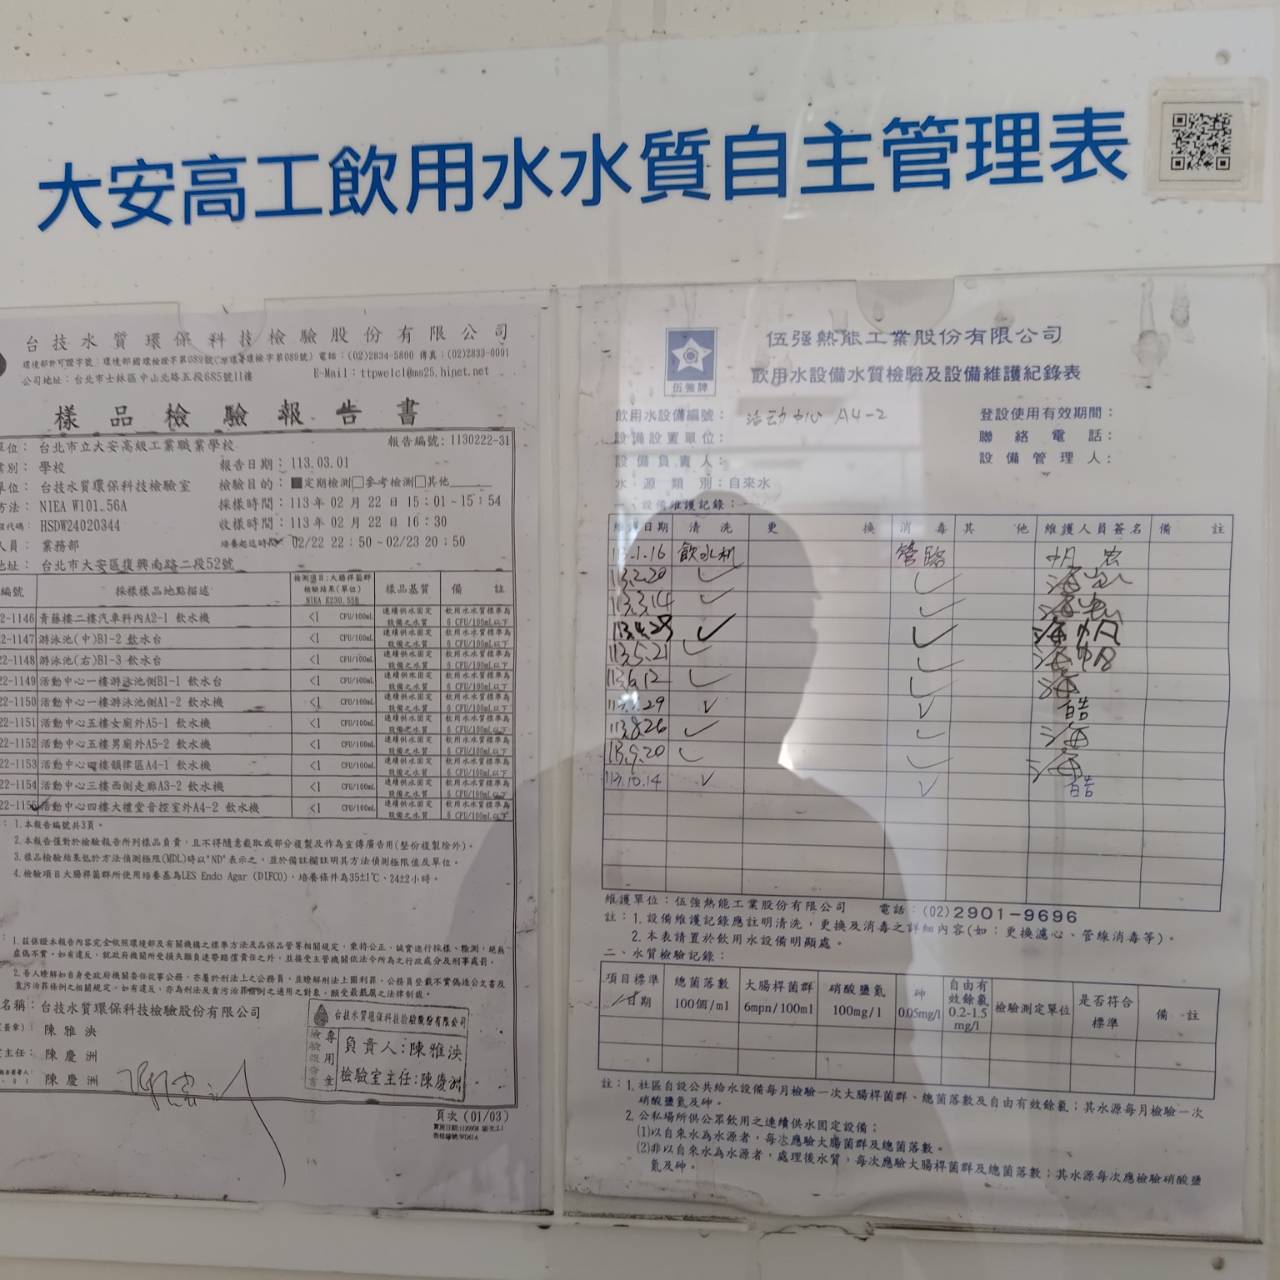 大安高工飲用水水質自主管理表
台技水質環保科技檢驗股份有限公司
環境部許可證字號：環境部國環檢證字第089號(原環署環檢字第089號) 電話：(02)2834-5800 傳真：(02)2833-0091
公司地址：台北市士林區中山北路五段685號11樓 E-Mail：ttpwelcl@ms25.hinet.net
樣品檢驗報告書
單位：台北市立大安高級工業職業學校 報告編號：1130222-31
類別：學校 報告日期：113.03.01
單位：台技水質環保科技檢驗室 檢驗目的：■定期檢測□參考檢測□其他
方法：NIEA W101.56A 採樣時間：113年02月22日15：01~15：54
代碼：HSDW24020344 收樣時間：113年02月22日16：30
人員：業務部 培養起迄時間：02/22 22：50~02/23 20：50
地址：台北市大安區復興南路二段52號
編號 採樣樣品地點描述 檢測項目：大腸桿菌群 檢驗結果(單位) NIEA E230.55B 樣品基質 備註
22-1146 青藤樓二樓汽車科內A2-1 飲水機 <1 CFU/100mL 連續供水固定設備之水質 飲用水水質標準為6 CFU/100mL以下
22-1147 游泳池(中)B1-2 飲水台 <1 CFU/100mL 連續供水固定設備之水質 飲用水水質標準為6 CFU/100mL以下
22-1148 游泳池(右)B1-3 飲水台 <1 CFU/100mL 連續供水固定設備之水質 飲用水水質標準為6 CFU/100mL以下
22-1149 活動中心一樓游泳池側B1-1 飲水台 <1 CFU/100mL 連續供水固定設備之水質 飲用水水質標準為6 CFU/100mL以下
22-1150 活動中心一樓游泳池側A1-2 飲水機 <1 CFU/100mL 連續供水固定設備之水質 飲用水水質標準為6 CFU/100mL以下
22-1151 活動中心五樓女廁外A5-1 飲水機 <1 CFU/100mL 連續供水固定設備之水質 飲用水水質標準為6 CFU/100mL以下
22-1152 活動中心五樓男廁外A5-2 飲水機 <1 CFU/100mL 連續供水固定設備之水質 飲用水水質標準為6 CFU/100mL以下
22-1153 活動中心四樓韻律區A4-1 飲水機 <1 CFU/100mL 連續供水固定設備之水質 飲用水水質標準為6 CFU/100mL以下
22-1154 活動中心三樓西側走廊A3-2 飲水機 <1 CFU/100mL 連續供水固定設備之水質 飲用水水質標準為6 CFU/100mL以下
22-1155 活動中心四樓大禮堂音控室外A4-2 飲水機 <1 CFU/100mL 連續供水固定設備之水質 飲用水水質標準為6 CFU/100mL以下
1.本報告編號共3頁。
2.本報告僅對於檢驗報告所列樣品負責，且不得隨意截取成部分複製及作為宣傳廣告用(整份複製除外)。
3.樣品檢驗結果低於方法偵測極限(MDL)時以"ND"表示之，並於備註欄註明其方法偵測極限值及單位。
4.檢驗項目大腸桿菌群所使用培養基為LES Endo Agar (DIFCO)，培養條件為35±1℃、24±2小時。
1.茲保證本報告內容完全依照環境部及有關機構之標準方法及品保品管等相關規定，秉持公正、誠實進行採樣、檢測，絕無
虛偽不實。如有違反，就政府機關所受損失願負連帶賠償責任之外，並接受主管機關依法令所為之行政處分及刑事處罰。
2.吾人瞭解如自身受政府機關委任從事公務，亦屬於刑法上之公務員，並瞭解刑法上圖利罪、公務員登載不實偽造公文書及
貪污治罪條例之相關規定。如有違反，亦為刑法及貪污治罪條例之適用之對象，願受最嚴厲之法律制裁。
名稱：台技水質環保科技檢驗股份有限公司
陳雅泱
主任：陳慶洲
陳慶洲
台技水質環保科技檢驗股份有限公司
檢驗報告專用章
負責人：陳雅泱
檢驗室主任：陳慶洲
頁次(01/03)
伍強牌
伍强熱能工業股份有限公司
飲用水設備水質檢驗及設備維護紀錄表
飲用水設備編號：活动中心 A4-2 登設使用有效期間：
設備設置單位： 聯絡電話：
設備負責人： 設備管理人：
水源類別：自來水
一、設備維護記錄：
維護日期 清洗 更換 消毒 其他 維護人員簽名 備註
113.1.16 飲水机 管路
113.2.20 ✓ ✓
113.3.14 ✓ ✓
113.4.23 ✓ ✓ 海帆
113.5.21 ✓ ✓ 海帆
113.6.12 ✓ ✓ 海
113.7.29 ✓ ✓ 皓
113.8.26 ✓ ✓ 海
113.9.20 ✓ ✓ 海
113.10.14 ✓ ✓ 皓
維護單位：伍強熱能工業股份有限公司 電話：(02)2901-9696
註：1.設備維護記錄應註明清洗，更換及消毒之詳細內容(如：更換濾心、管線消毒等)。
2.本表請置於飲用水設備明顯處。
二、水質檢驗記錄：
項目標準／日期 總菌落數100個/ml 大腸桿菌群6mpn/100ml 硝酸鹽氮100mg/l 砷0.05mg/l 自由有效餘氯0.2-1.5mg/l 檢驗測定單位 是否符合標準 備註
註：1.社區自設公共給水設備每月檢驗一次大腸桿菌群、總菌落數及自由有效餘氯；其水源每月檢驗一次
硝酸鹽氮及砷。
2.公私場所供公眾飲用之連續供水固定設備：
(1)以自來水為水源者，每次應驗大腸菌群及總菌落數。
(2)非以自來水為水源者，處理後水質，每次應驗大腸桿菌群及總菌落數；其水源每次應檢驗硝酸鹽
氮及砷。